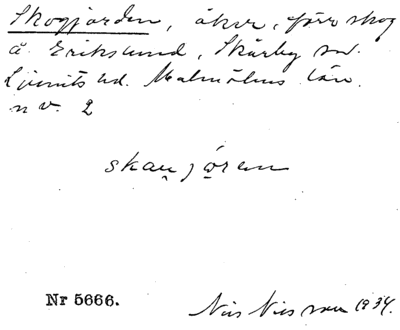 Skogjorden, åker, förr skog
å. Erikslund, Skårby sn.
Ljunits hd. Malmöhus län.
n v. 2
skau̯jo̤ren
Nr 5666.
Nils Nilsson 1934.